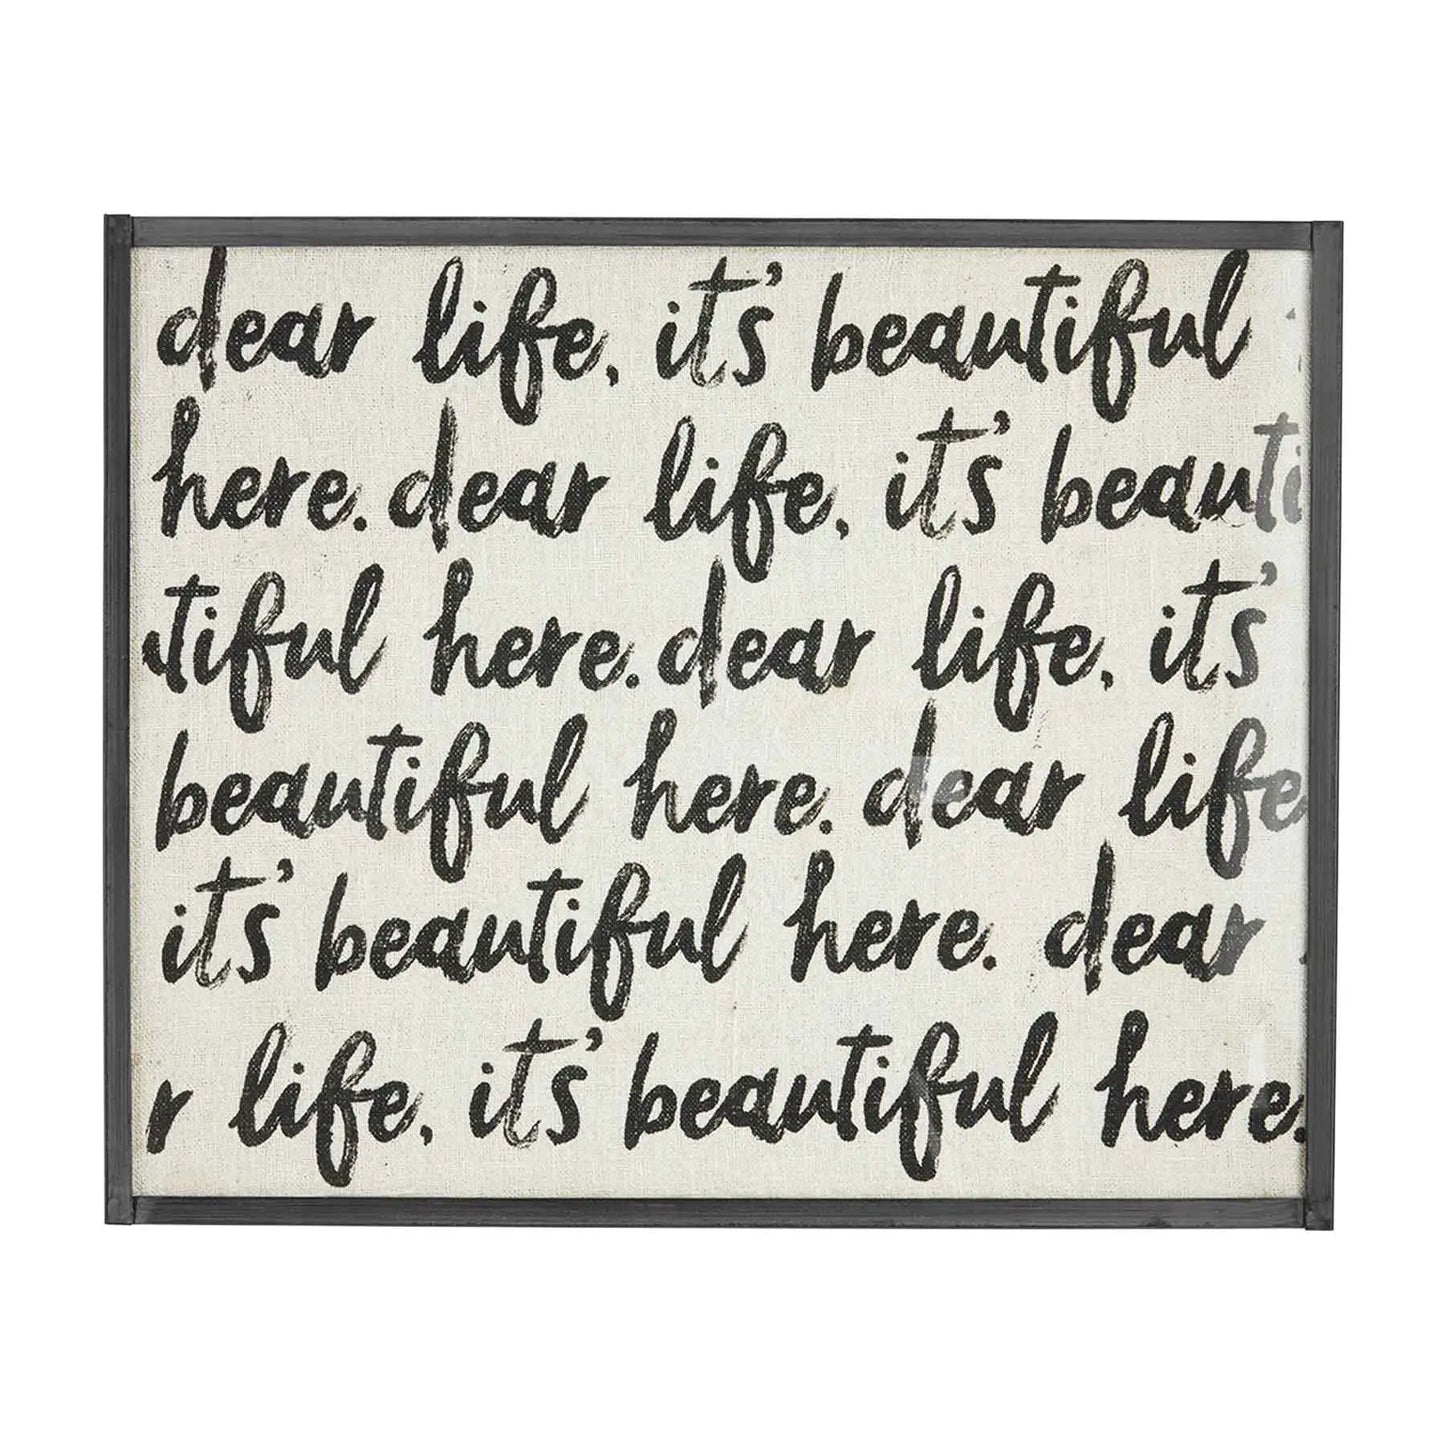 dear life, it's beautiful
here. dear life, it's beauti
utiful here. dear life, it's
beautiful here. dear life,
it's beautiful here. dear
r life, it's beautiful here.